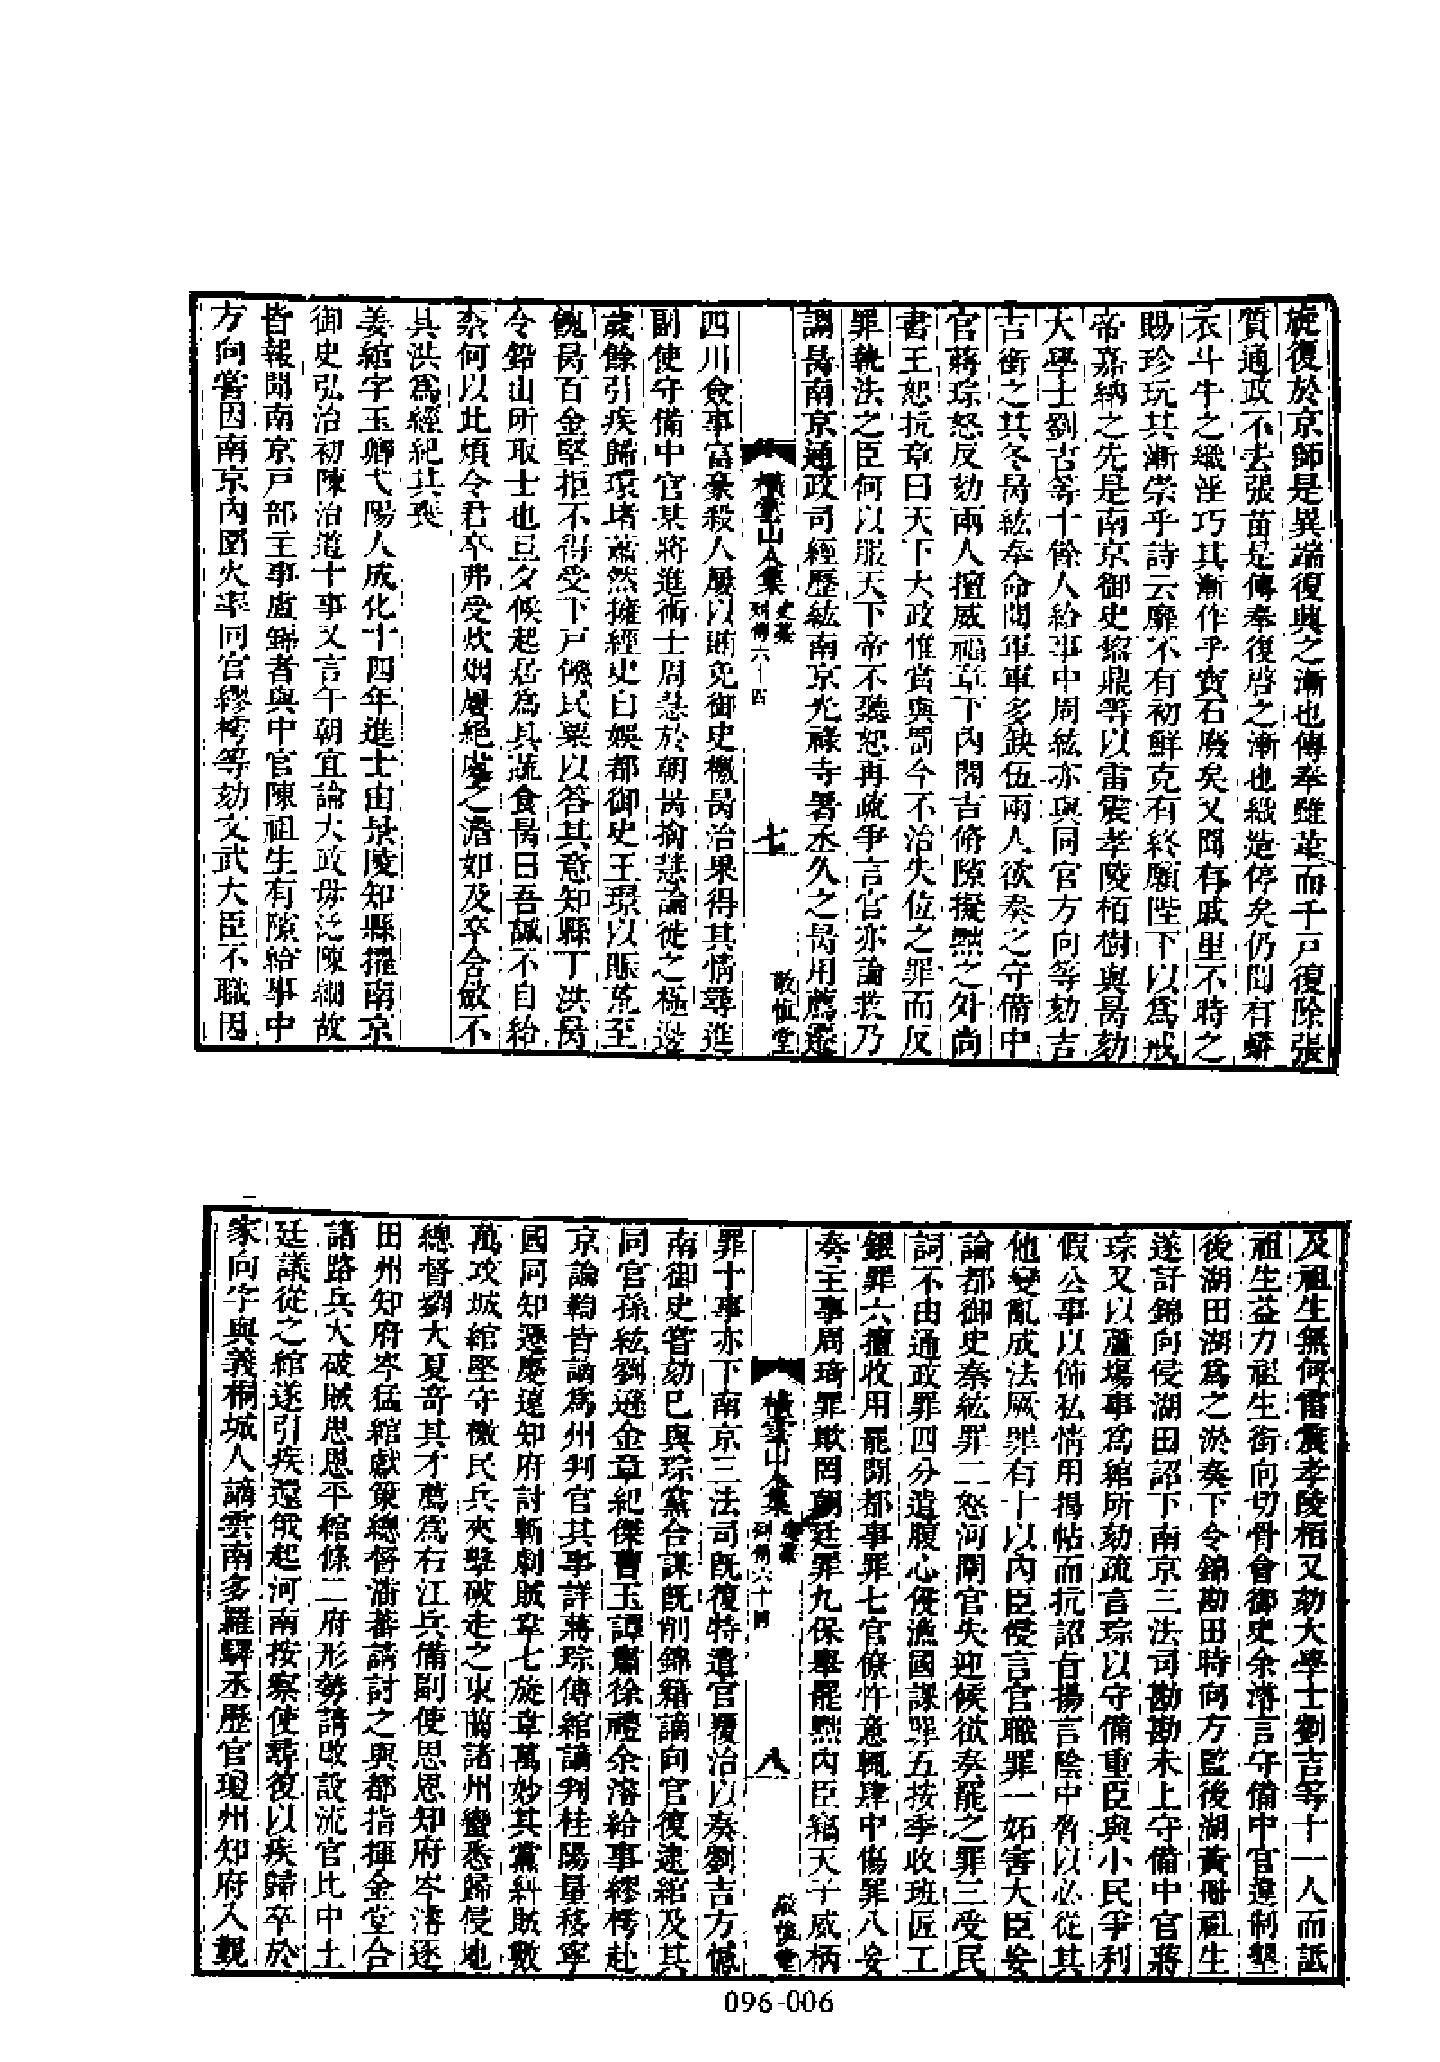 旋復於京師是異端復興之漸也傳奉雖革而千戶復除張
質通政不去張苗是傳奉復啓之漸也織造停矣仍聞有蟒
衣斗牛之織淫巧其漸作乎寶石廢矣又聞有戚里不時之
賜珍玩其漸崇乎詩云靡不有初鮮克有終願陛下以爲戒
帝嘉納之先是南京御史鼎等以雷震孝陵栢樹與昺劾
大學士劉吉等十餘人給事中周紘亦與同官方向等劾吉
吉銜之其冬昺紘奉命閱軍軍多缺伍兩人欲奏之守備中
官蔣琮怒反劾兩人擅威福章下內閣吉修隙擬黜之外尚
書王恕抗章曰天下大政惟賞與罰今不治失伍之罪而反
罪執法之臣何以服天下帝不聽恕再疏爭言官亦論救乃
調昺南京通政司經歷紘南京光祿寺署丞久之昺用薦遷
橫雲山人集 史藁 列傳六十四 七 敬慎堂
四川僉事富豪殺人屢以賄免御史檄昺治果得其情尋進
副使守備中官某將進術士周慧於朝昺擒慧論徙之極邊
歲餘引疾歸環堵蕭然擁經史自娛都御史王璟以賑荒至
餽昺百金堅拒不得受下戶饑民粟以答其意知縣丁洪昺
令鉛山所取士也旦夕候起居爲具蔬食昺曰吾誠不自給
柰何以此煩令君卒弗受炊烟屢絕處之澹如及卒含斂不
具洪爲經紀其喪
姜綰字玉卿弋陽人成化十四年進士由景陵知縣擢南京
御史弘治初陳治道十事又言午朝宜論大政毋泛陳細故
皆報聞南京戶部主事盧錦者與中官陳祖生有隙給事中
方向嘗因南京內園火率同官繆樗等劾文武大臣不職因
及祖生無何雷震孝陵栢又劾大學士劉吉等十一人而詆
祖生益力祖生銜向切骨會御史余濬言守備中官違制墾
後湖田湖爲之淤奏下令錦勘田時向方監後湖黃冊祖生
遂訐錦向侵湖田詔下南京三法司勘勘未上守備中官蔣
琮又以蘆場事爲綰所劾疏言琮以守備重臣與小民爭利
假公事以飾私情用揭帖而抗詔旨揚言陰中脅以必從其
他變亂成法厥罪有十以內臣侵言官職罪一妬害大臣妄
論都御史秦紘罪二怒河閘官失迎候欲奏罷之罪三受民
詞不由通政罪四分遣腹心侵漁國課罪五按季收班匠工
銀罪六擅收用罷閒都事罪七官僚忤意輒肆中傷罪八妄
奏主事周琦罪欺罔朝廷罪九保舉罷黜內臣竊天子威柄
橫雲山人集 史藁 列傳六十四 八 敬慎堂
罪十事亦下南京三法司既復特遣官覆治以奏劉吉方憾
南御史嘗劾己與琮黨合謀既削錦籍謫向官復逮綰及其
同官孫紘劉遜金章紀傑曹玉譚肅徐禮余濬給事繆樗赴
京論鞫皆謫爲州判官其事詳蔣琮傳綰謫判桂陽量移寧
國同知遷慶遠知府討斬劇賊韋七旋韋萬妙其黨糾賊數
萬攻城綰堅守檄民兵夾擊破走之東蘭諸州蠻悉歸侵地
總督劉大夏奇其才薦爲右江兵備副使思恩知府岑濬逐
田州知府岑猛綰獻策總督潘蕃請討之與都指揮金堂合
諸路兵大破賊思恩平綰條二府形勢請改設流官比中土
廷議從之綰遂引疾還俄起河南按察使尋復以疾歸卒於
家向字與義桐城人謫雲南多羅驛丞歷官瓊州知府入覲
096-006